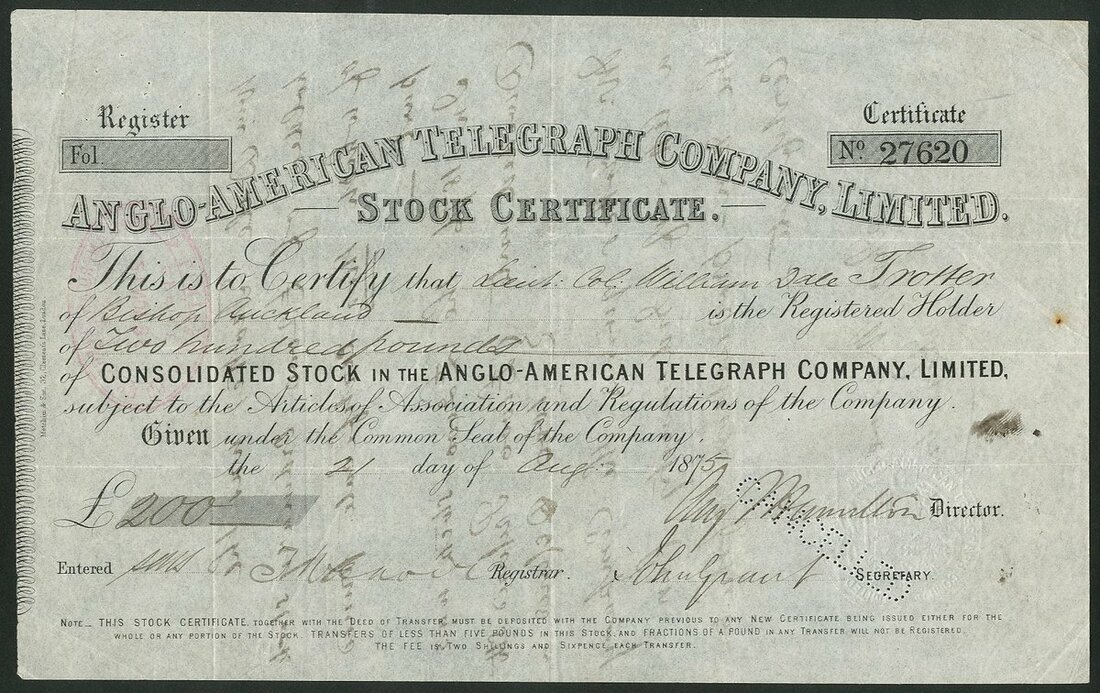 Register
Fol.
Certificate
No 27620
ANGLO-AMERICAN TELEGRAPH COMPANY, LIMITED.
STOCK CERTIFICATE.
This is to Certify that Lieut: Col: William Dale Trotter
of Bishop Auckland — is the Registered Holder
of Two hundred pounds
of CONSOLIDATED STOCK IN THE ANGLO-AMERICAN TELEGRAPH COMPANY, LIMITED,
subject to the Articles of Association and Regulations of the Company.
Given under the Common Seal of the Company,
the 21 day of Aug: 1875
£200
Hamilton Director.
Entered Registrar. John Grant SECRETARY.
CANCELLED
NOTE_ THIS STOCK CERTIFICATE, TOGETHER WITH THE DEED OF TRANSFER, MUST BE DEPOSITED WITH THE COMPANY PREVIOUS TO ANY NEW CERTIFICATE BEING ISSUED EITHER FOR THE
WHOLE OR ANY PORTION OF THE STOCK. TRANSFERS OF LESS THAN FIVE POUNDS IN THIS STOCK, AND FRACTIONS OF A POUND IN ANY TRANSFER WILL NOT BE REGISTERED.
THE FEE IS TWO SHILLINGS AND SIXPENCE EACH TRANSFER.